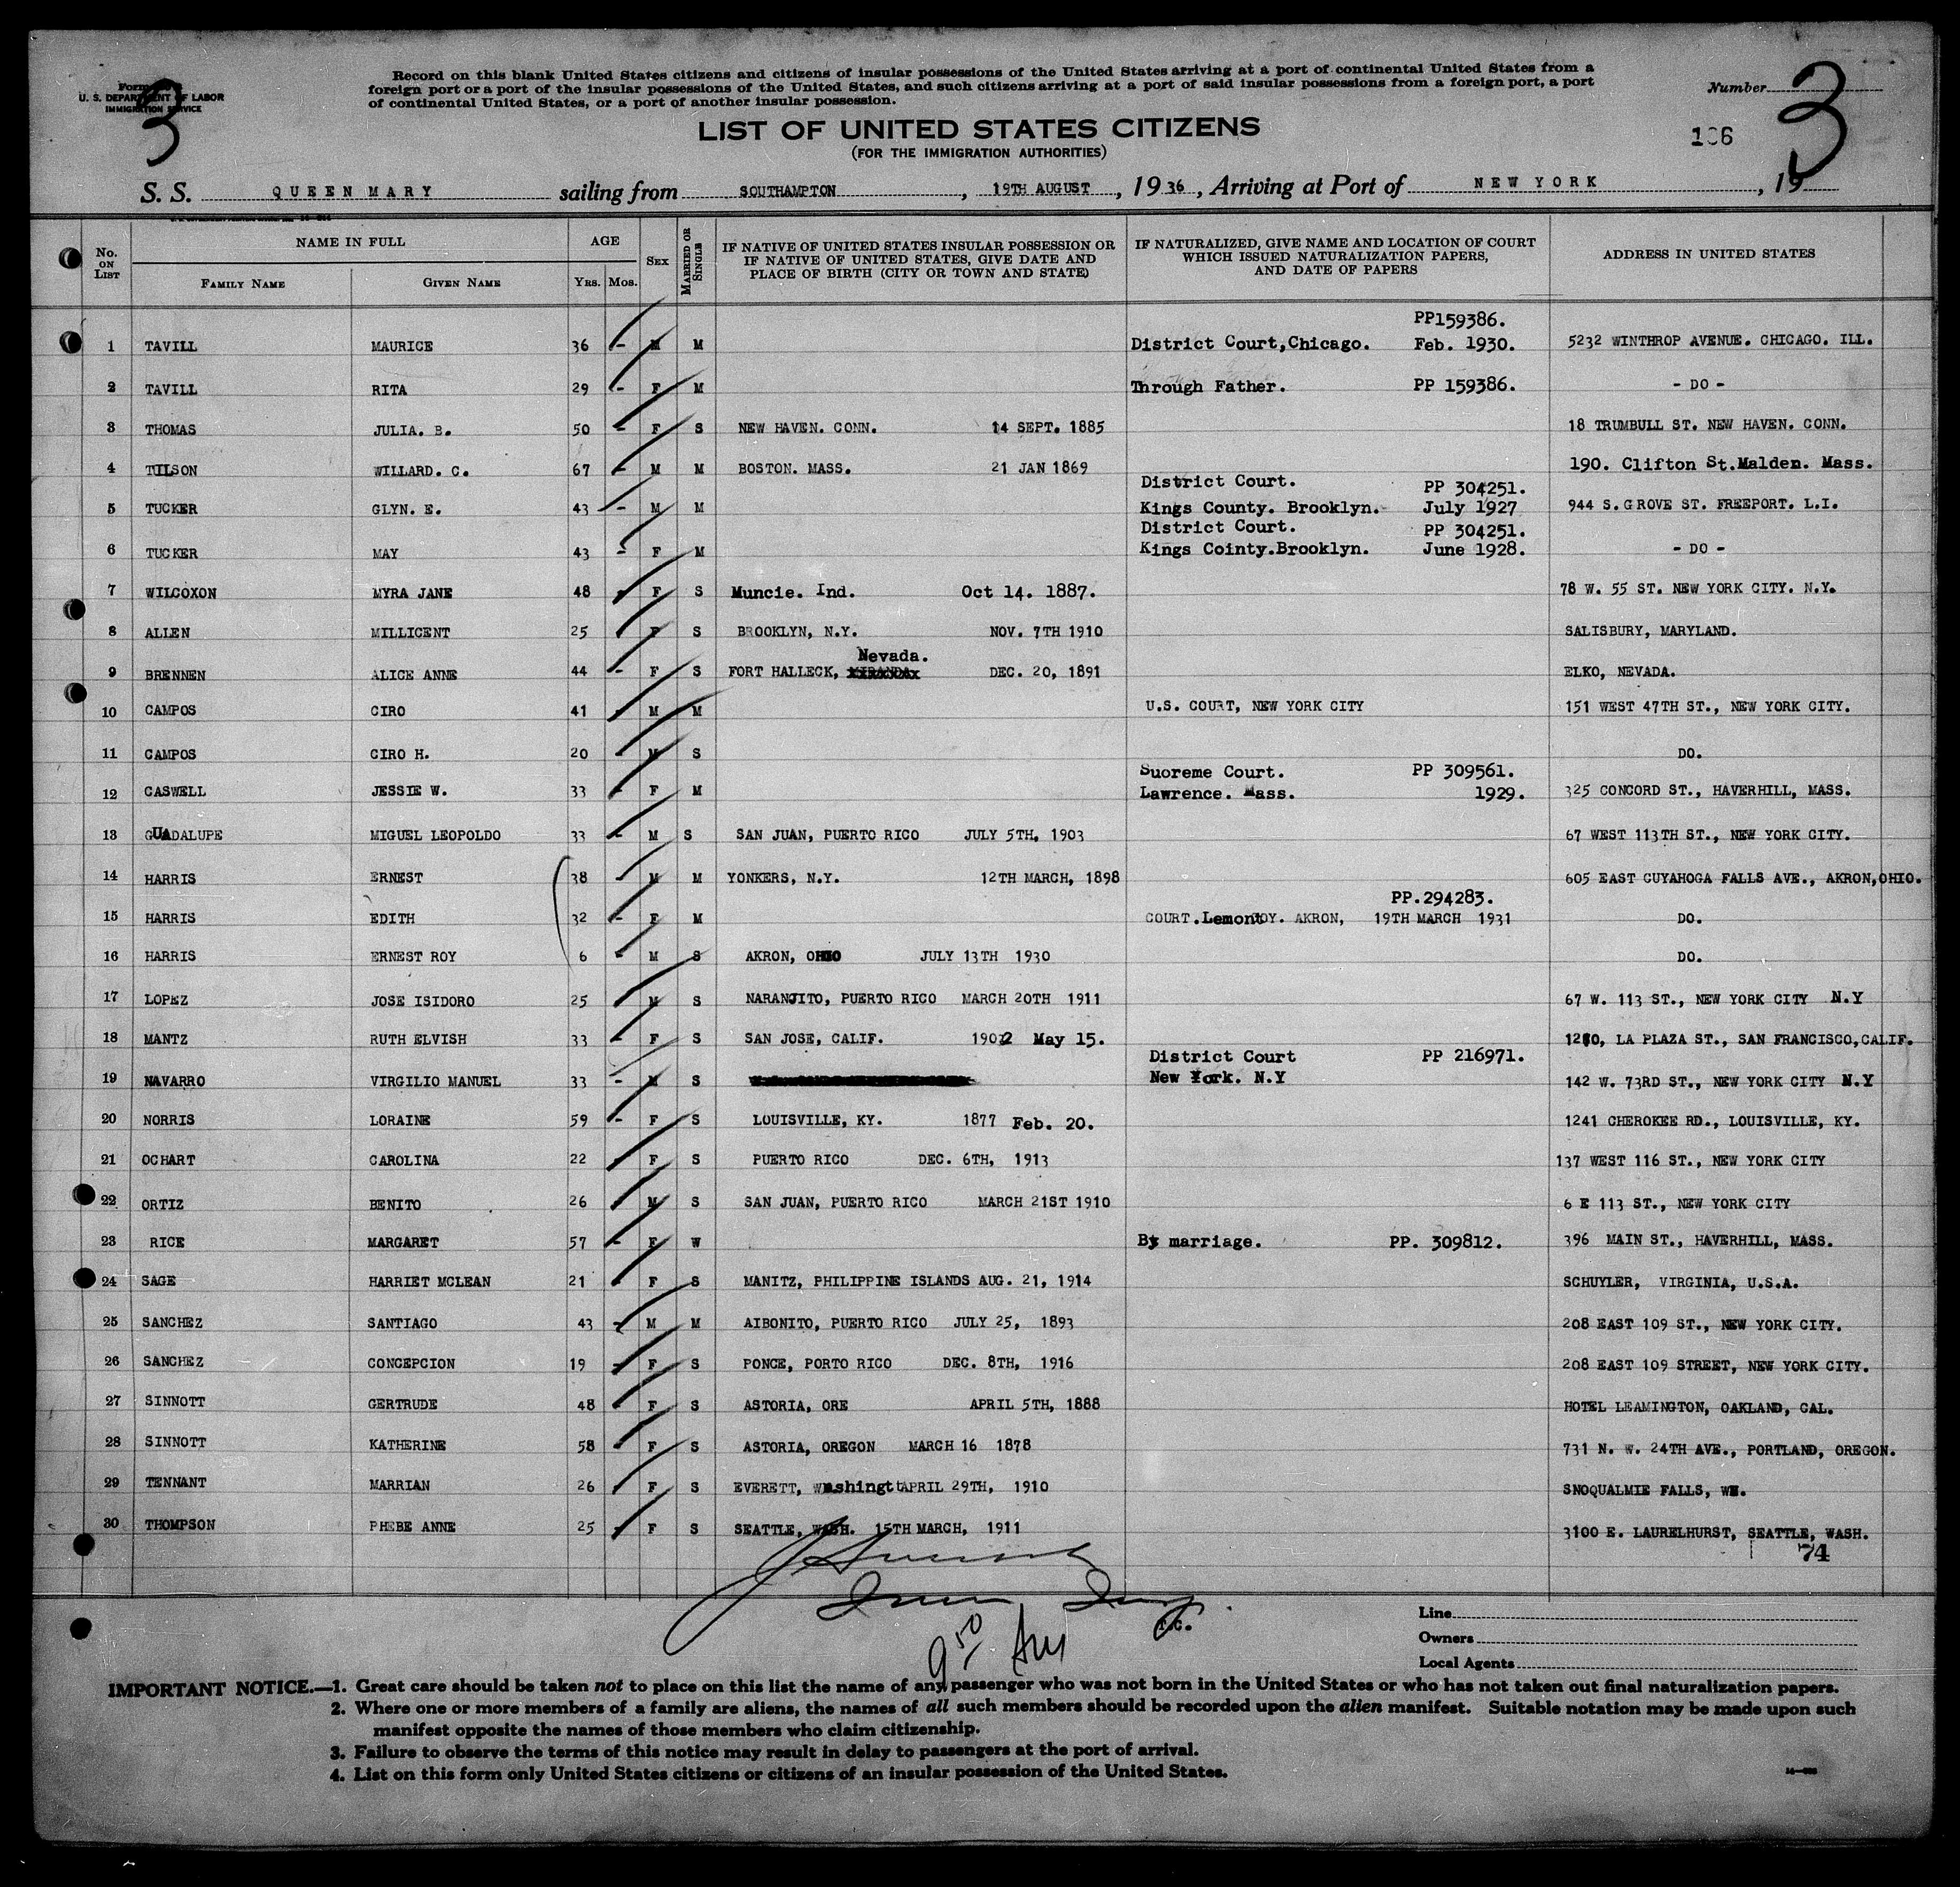 Form
U. S. DEPARTMENT OF LABOR
IMMIGRATION SERVICE
3
Record on this blank United States citizens and citizens of insular possessions of the United States arriving at a port of continental United States from a
foreign port or a port of the insular possessions of the United States, and such citizens arriving at a port of said insular possessions from a foreign port, a port
of continental United States, or a port of another insular possession.
Number 3
LIST OF UNITED STATES CITIZENS
(FOR THE IMMIGRATION AUTHORITIES)
106
S. S. QUEEN MARY sailing from SOUTHAMPTON, 19TH AUGUST, 1936, Arriving at Port of NEW YORK, 19
No. ON LIST NAME IN FULL FAMILY NAME GIVEN NAME AGE YRS. MOS. SEX MARRIED OR SINGLE IF NATIVE OF UNITED STATES INSULAR POSSESSION OR IF NATIVE OF UNITED STATES, GIVE DATE AND PLACE OF BIRTH (CITY OR TOWN AND STATE) IF NATURALIZED, GIVE NAME AND LOCATION OF COURT WHICH ISSUED NATURALIZATION PAPERS, AND DATE OF PAPERS ADDRESS IN UNITED STATES
PP159386.
1 TAVILL MAURICE 36 - M M District Court,Chicago. Feb. 1930. 5232 WINTHROP AVENUE. CHICAGO. ILL.
2 TAVILL RITA 29 - F M Through Father. PP 159386. - DO -
3 THOMAS JULIA. B. 50 - F S NEW HAVEN. CONN. 14 SEPT. 1885 18 TRUMBULL ST. NEW HAVEN. CONN.
4 TILSON WILLARD. C. 67 - M M BOSTON. MASS. 21 JAN 1869 190. Clifton St.Malden. Mass.
District Court. PP 304251.
5 TUCKER GLYN. E. 43 - M M Kings County. Brooklyn. July 1927 944 S.GROVE ST. FREEPORT. L.I.
District Court. PP 304251.
6 TUCKER MAY 43 - F M Kings Cointy.Brooklyn. June 1928. - DO -
7 WILCOXON MYRA JANE 48 - F S Muncie. Ind. Oct 14. 1887. 78 W. 55 ST. NEW YORK CITY. N.Y.
8 ALLEN MILLICENT 25 - F S BROOKLYN, N.Y. NOV. 7TH 1910 SALISBURY, MARYLAND.
Nevada.
9 BRENNEN ALICE ANNE 44 - F S FORT HALLECK, DEC. 20, 1891 ELKO, NEVADA.
10 CAMPOS CIRO 41 - M M U.S. COURT, NEW YORK CITY 151 WEST 47TH ST., NEW YORK CITY.
11 CAMPOS CIRO H. 20 - M S DO.
Suoreme Court. PP 309561.
12 CASWELL JESSIE W. 33 - F M Lawrence. Mass. 1929. 325 CONCORD ST., HAVERHILL, MASS.
13 GUADALUPE MIGUEL LEOPOLDO 33 - M S SAN JUAN, PUERTO RICO JULY 5TH, 1903 67 WEST 113TH ST., NEW YORK CITY.
14 HARRIS ERNEST 38 - M M YONKERS, N.Y. 12TH MARCH, 1898 605 EAST CUYAHOGA FALLS AVE., AKRON,OHIO.
PP.294283.
15 HARRIS EDITH 32 - F M COURT. AKRON, 19TH MARCH 1931 DO.
16 HARRIS ERNEST ROY 6 - M S AKRON, OHIO JULY 13TH 1930 DO.
17 LOPEZ JOSE ISIDORO 25 - M S NARANJITO, PUERTO RICO MARCH 20TH 1911 67 W. 113 ST., NEW YORK CITY N.Y
18 MANTZ RUTH ELVISH 33 - F S SAN JOSE, CALIF. 1902 May 15. LA PLAZA ST., SAN FRANCISCO,CALIF.
District Court PP 216971.
19 NAVARRO VIRGILIO MANUEL 33 - M S New York. N.Y 142 W. 73RD ST., NEW YORK CITY N.Y
20 NORRIS LORAINE 59 - F S LOUISVILLE, KY. 1877 Feb. 20. 1241 CHEROKEE RD., LOUISVILLE, KY.
21 OCHART CAROLINA 22 - F S PUERTO RICO DEC. 6TH, 1913 137 WEST 116 ST., NEW YORK CITY
22 ORTIZ BENITO 26 - M S SAN JUAN, PUERTO RICO MARCH 21ST 1910 6 E 113 ST., NEW YORK CITY
23 RICE MARGARET 57 - F W By marriage. PP. 309812. 396 MAIN ST., HAVERHILL, MASS.
24 SAGE HARRIET MCLEAN 21 - F S MANITZ, PHILIPPINE ISLANDS AUG. 21, 1914 SCHUYLER, VIRGINIA, U.S.A.
25 SANCHEZ SANTIAGO 43 - M M AIBONITO, PUERTO RICO JULY 25, 1893 208 EAST 109 ST., NEW YORK CITY.
26 SANCHEZ CONCEPCION 19 - F S PONCE, PORTO RICO DEC. 8TH, 1916 208 EAST 109 STREET, NEW YORK CITY.
27 SINNOTT GERTRUDE 48 - F S ASTORIA, ORE APRIL 5TH, 1888 HOTEL LEAMINGTON, OAKLAND, CAL.
28 SINNOTT KATHERINE 58 - F S ASTORIA, OREGON MARCH 16 1878 731 N. W. 24TH AVE., PORTLAND, OREGON.
29 TENNANT MARRIAN 26 - F S EVERETT, Washingt APRIL 29TH, 1910 SNOQUALMIE FALLS, WN.
30 THOMPSON PHEBE ANNE 25 - F S SEATTLE, WASH. 15TH MARCH, 1911 3100 E. LAURELHURST, SEATTLE, WASH.
74
Line
Owners
Local Agents
IMPORTANT NOTICE.—1. Great care should be taken not to place on this list the name of any passenger who was not born in the United States or who has not taken out final naturalization papers.
2. Where one or more members of a family are aliens, the names of all such members should be recorded upon the alien manifest. Suitable notation may be made upon such
manifest opposite the names of those members who claim citizenship.
3. Failure to observe the terms of this notice may result in delay to passengers at the port of arrival.
4. List on this form only United States citizens or citizens of an insular possession of the United States.